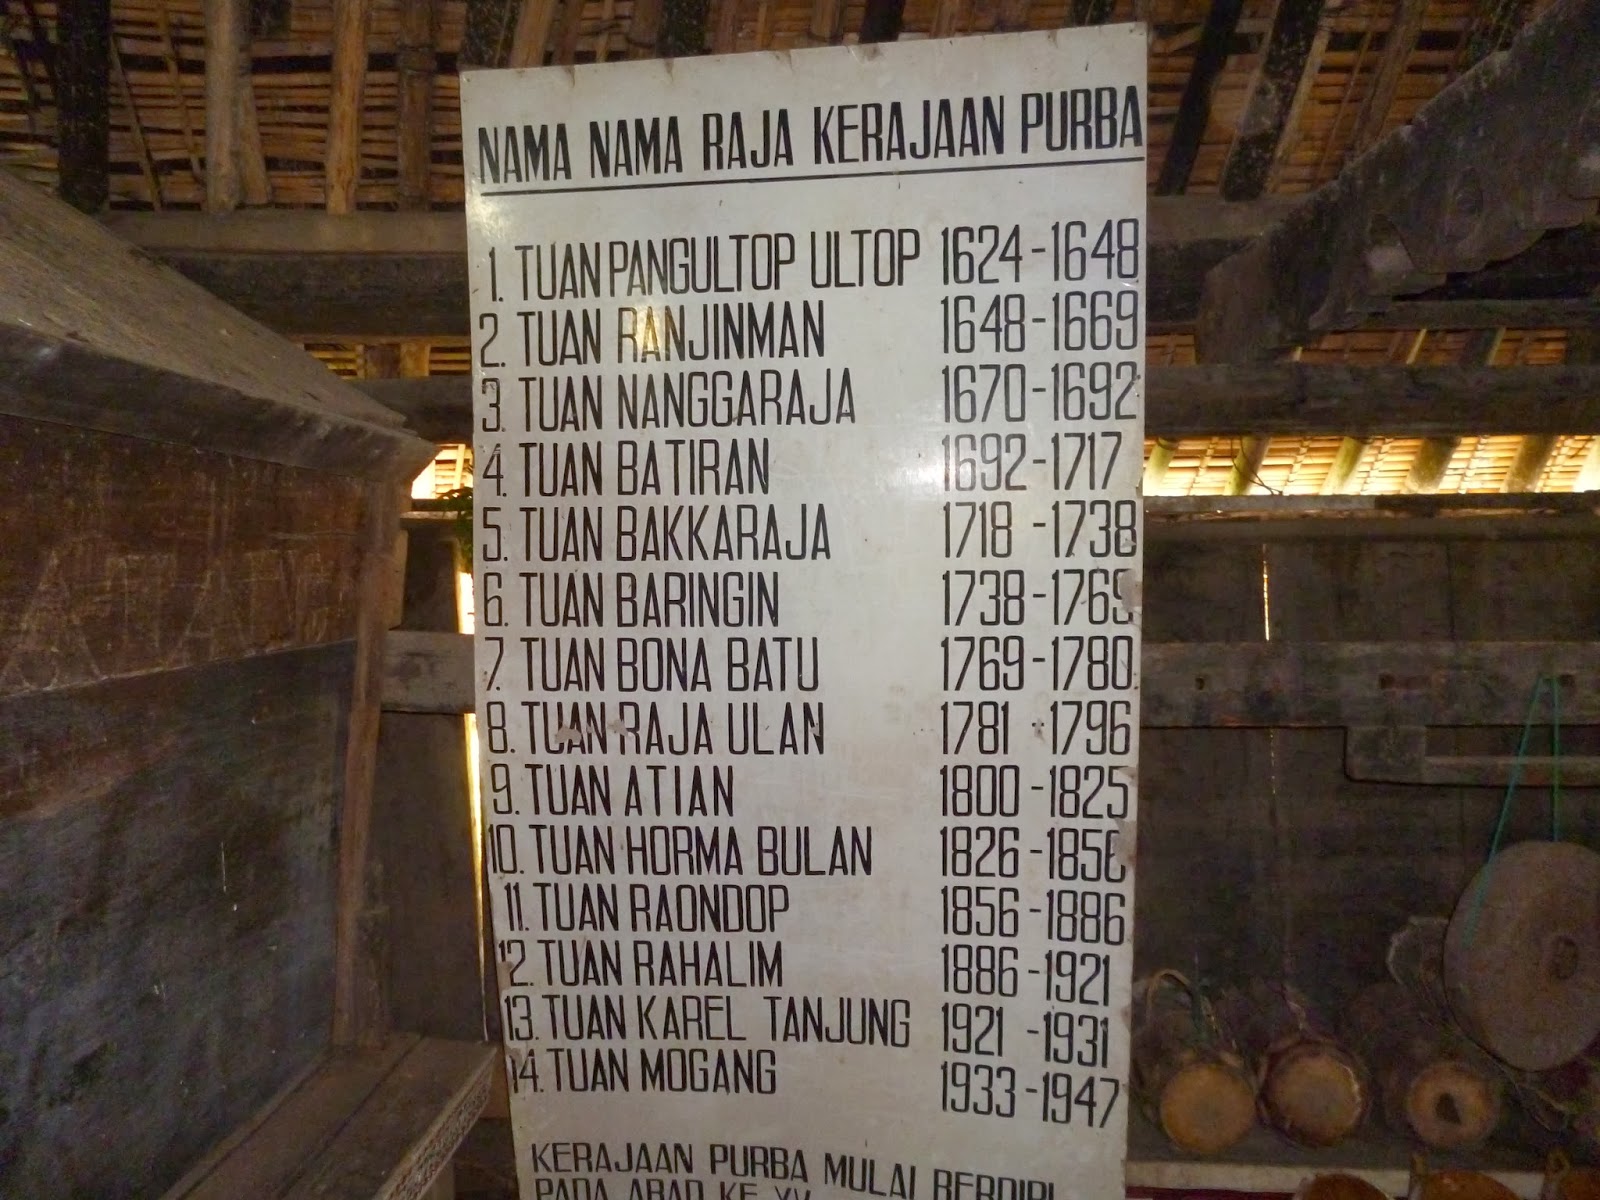 NAMA NAMA RAJA KERAJAAN PURBA
1. TUAN PANGULTOP ULTOP 1624-1648
2. TUAN RANJINMAN 1648-1669
3. TUAN NANGGARAJA 1670-1692
4. TUAN BATIRAN 1692-1717
5. TUAN BAKKARAJA 1718-1738
6. TUAN BARINGIN 1738-1769
7. TUAN BONA BATU 1769-1780
8. TUAN RAJA ULAN 1781-1796
9. TUAN ATIAN 1800-1825
10. TUAN HORMA BULAN 1826-1856
11. TUAN RAONDOP 1856-1886
12. TUAN RAHALIM 1886-1921
13. TUAN KAREL TANJUNG 1921-1931
14. TUAN MOGANG 1933-1947
KERAJAAN PURBA MULAI BERDIRI
PADA ABAD KE XV